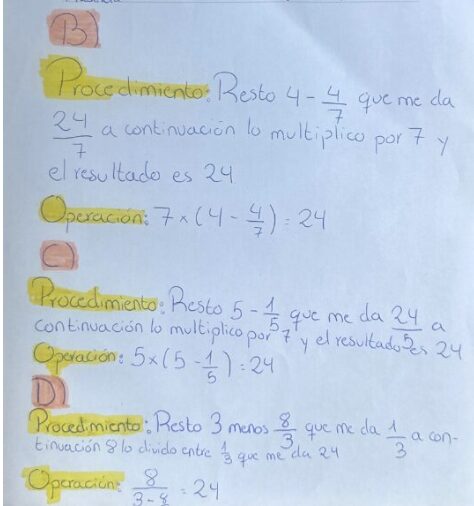 B)
Procedimiento: Resto 4 - 4/7 que me da
24/7 a continuación lo multiplico por 7 y
el resultado es 24
Operación: 7 × (4 - 4/7) = 24
C)
Procedimiento: Resto 5 - 1/5 que me da 24/5 a
continuación lo multiplico por 7 y el resultado es 24
Operación: 5×(5 - 1/5) = 24
D)
Procedimiento: Resto 3 menos 8/3 que me da 1/3 a con-
tinuación 8 lo divido entre 1/3 que me da 24
Operación: 8/3-8 = 24